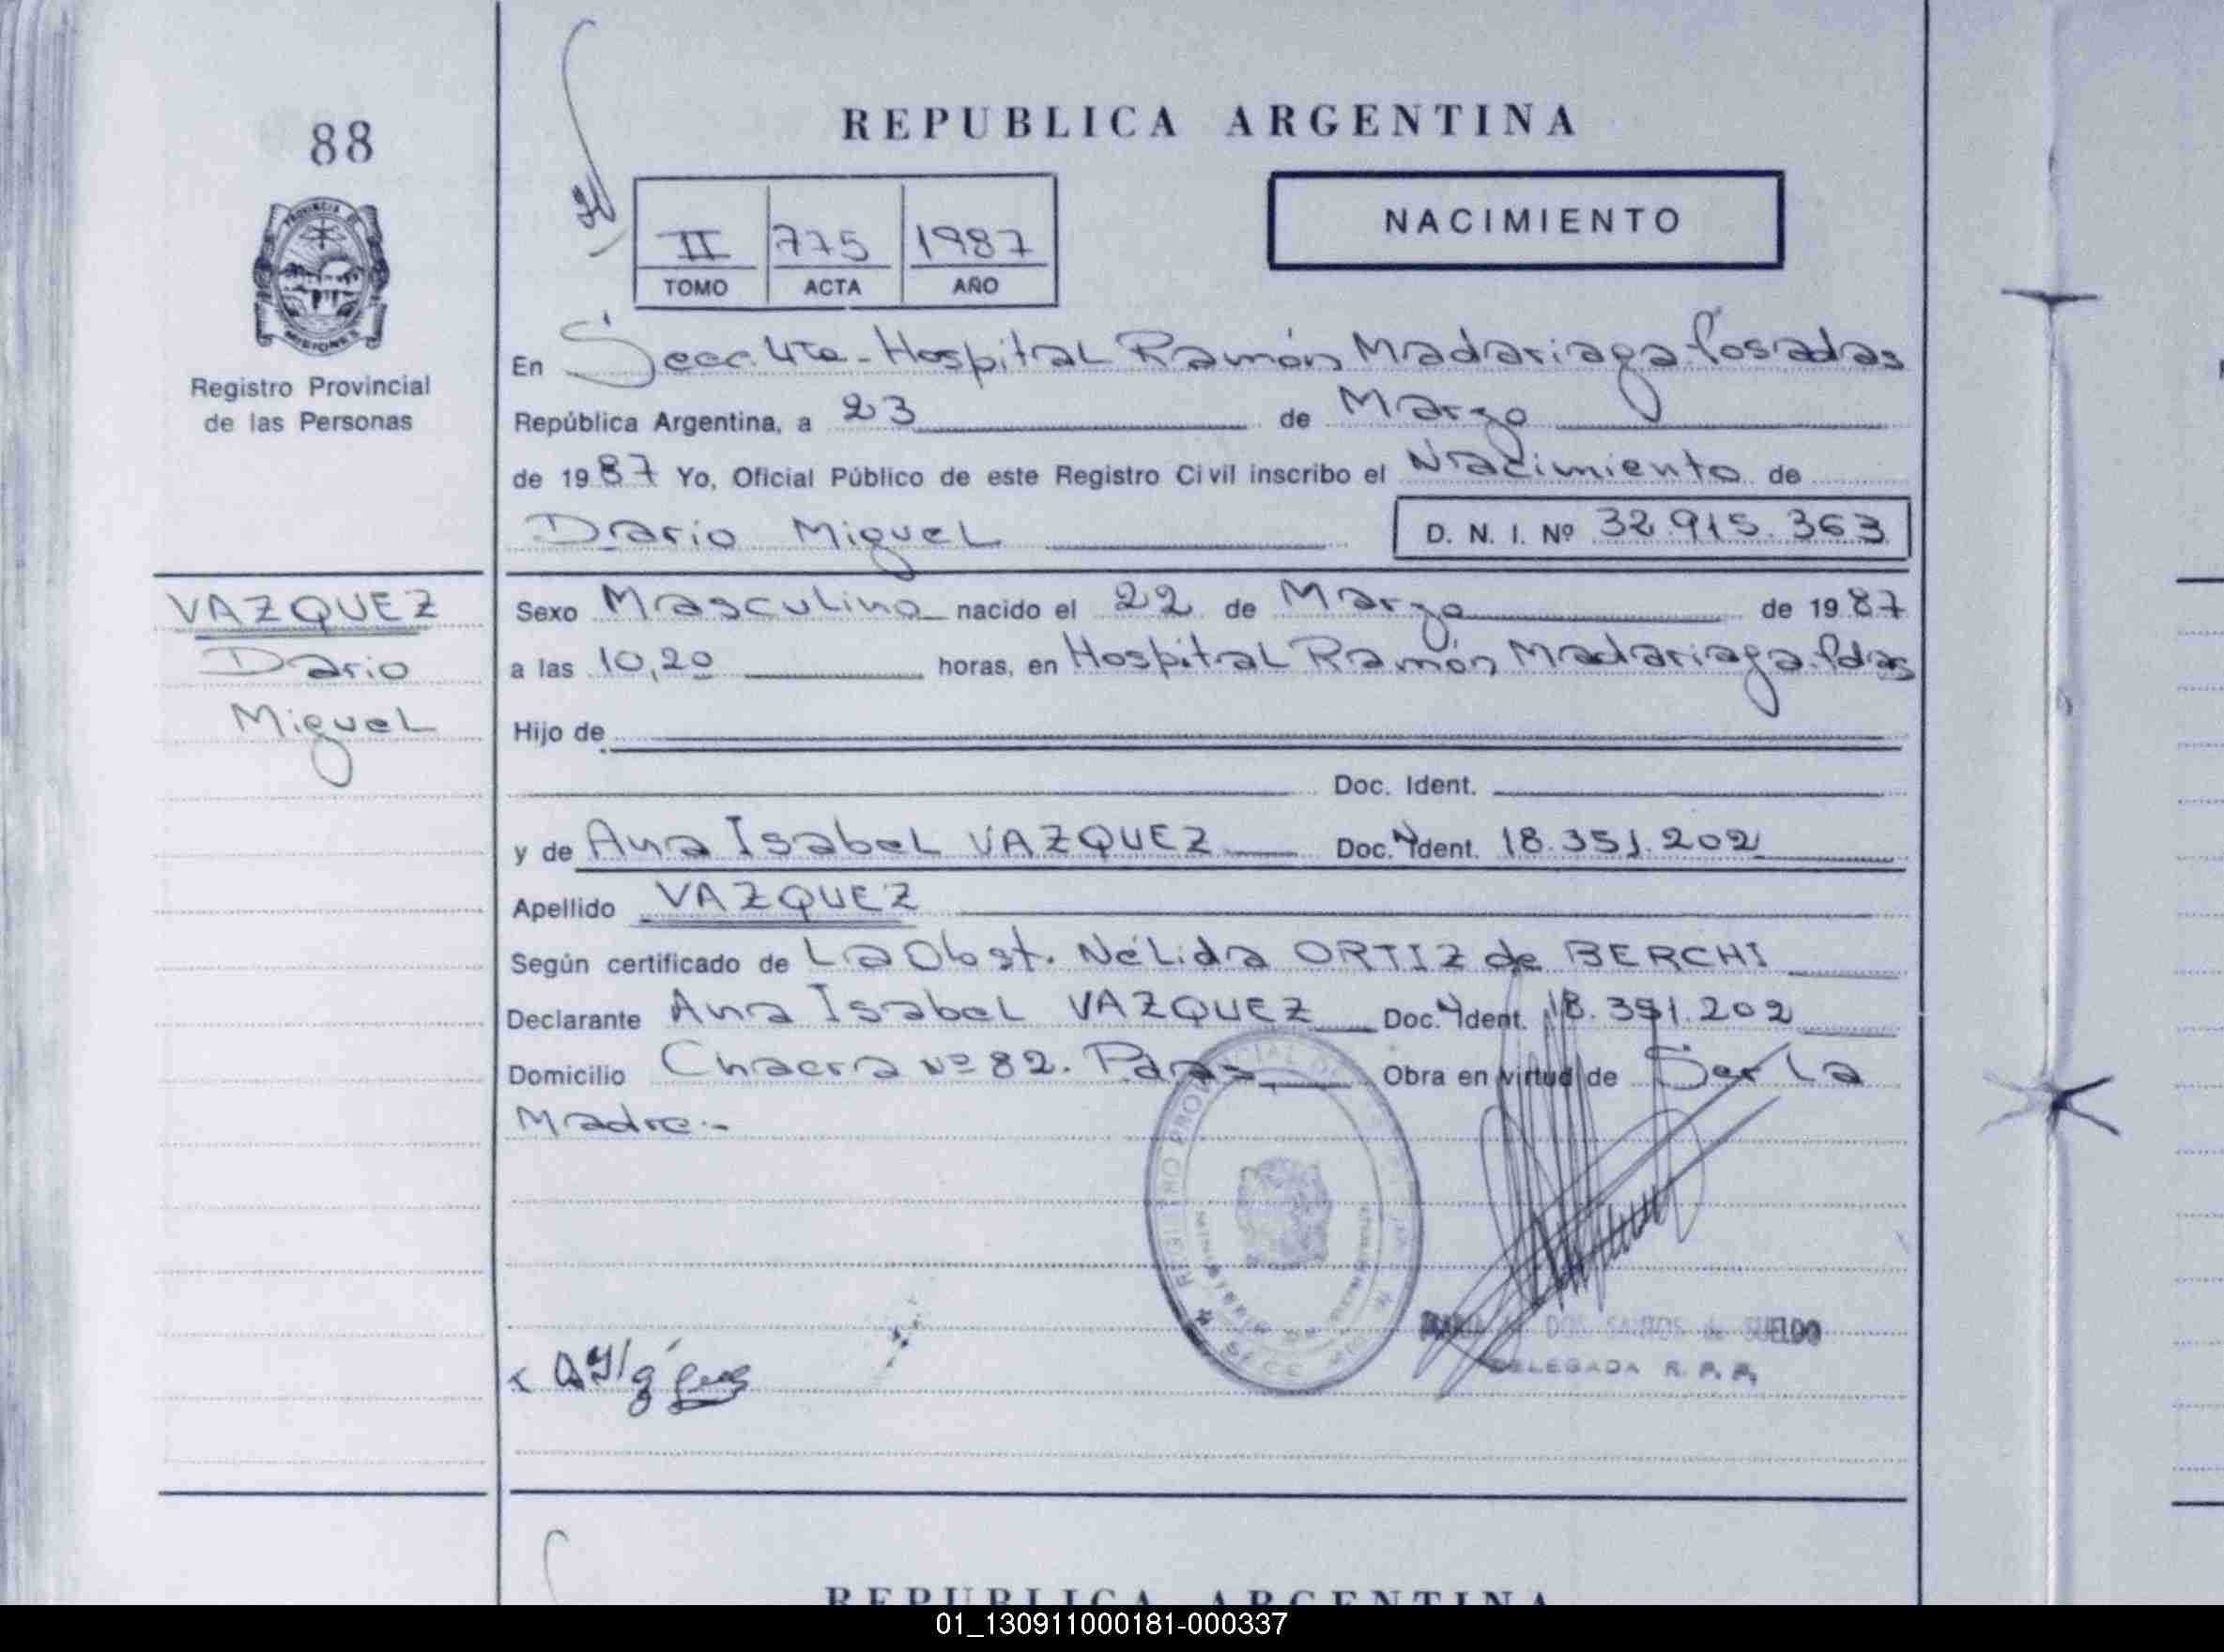 88
REPUBLICA ARGENTINA
II 775 1987
TOMO ACTA AÑO
NACIMIENTO
PROVINCIA DE MISIONES
Registro Provincial
de las Personas
En Secc. 4ta - Hospital Ramón Madariaga Posadas
República Argentina, a 23 de Marzo
de 1987 Yo, Oficial Público de este Registro Civil inscribo el Nacimiento de
Dario Miguel D. N. I. Nº 32.915.363
VAZQUEZ
Dario
Miguel
Sexo Masculino nacido el 22 de Marzo de 1987
a las 10,20 horas, en Hospital Ramón Madariaga. Pdas
Hijo de
Doc. Ident.
y de Ana Isabel VAZQUEZ Doc. Ident. 18.351.202
Apellido VAZQUEZ
Según certificado de La Obst. Nélida ORTIZ de BERCHI
Declarante Ana Isabel VAZQUEZ Doc. Ident. 18.351.202
Domicilio Chacra Nº 82. Pdas Obra en virtud de Ser la
Madre.-
DOS SANTOS de SUELDO
DELEGADA R. P. P.
REPUBLICA ARGENTINA
01_130911000181-000337